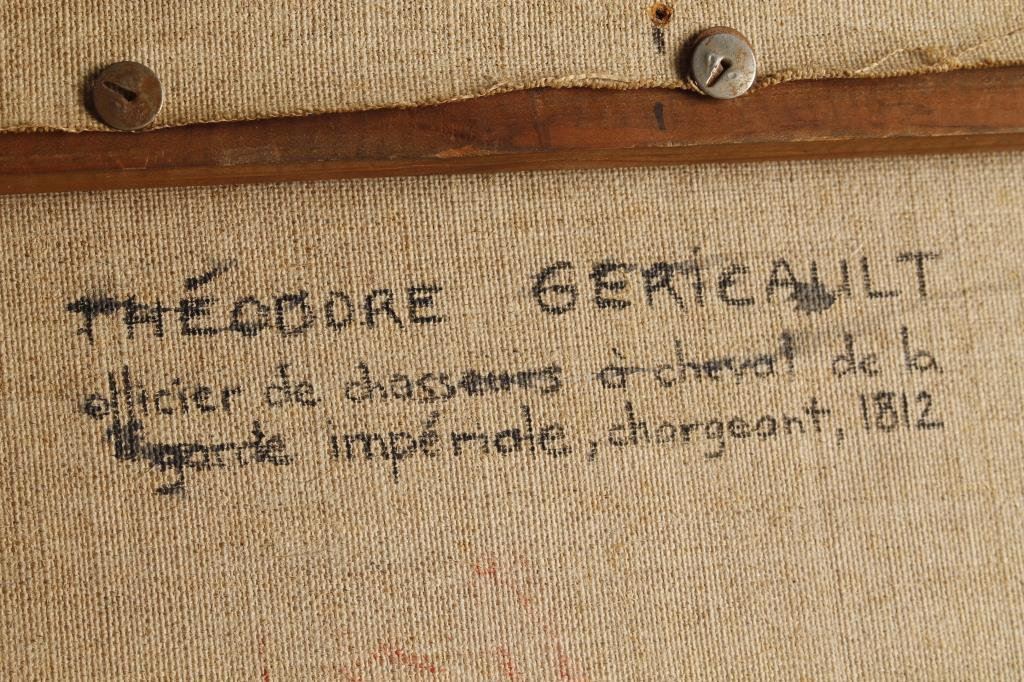 THÉODORE GERICAULT
officier de chasseurs à cheval de la
garde impériale, chargeant, 1812